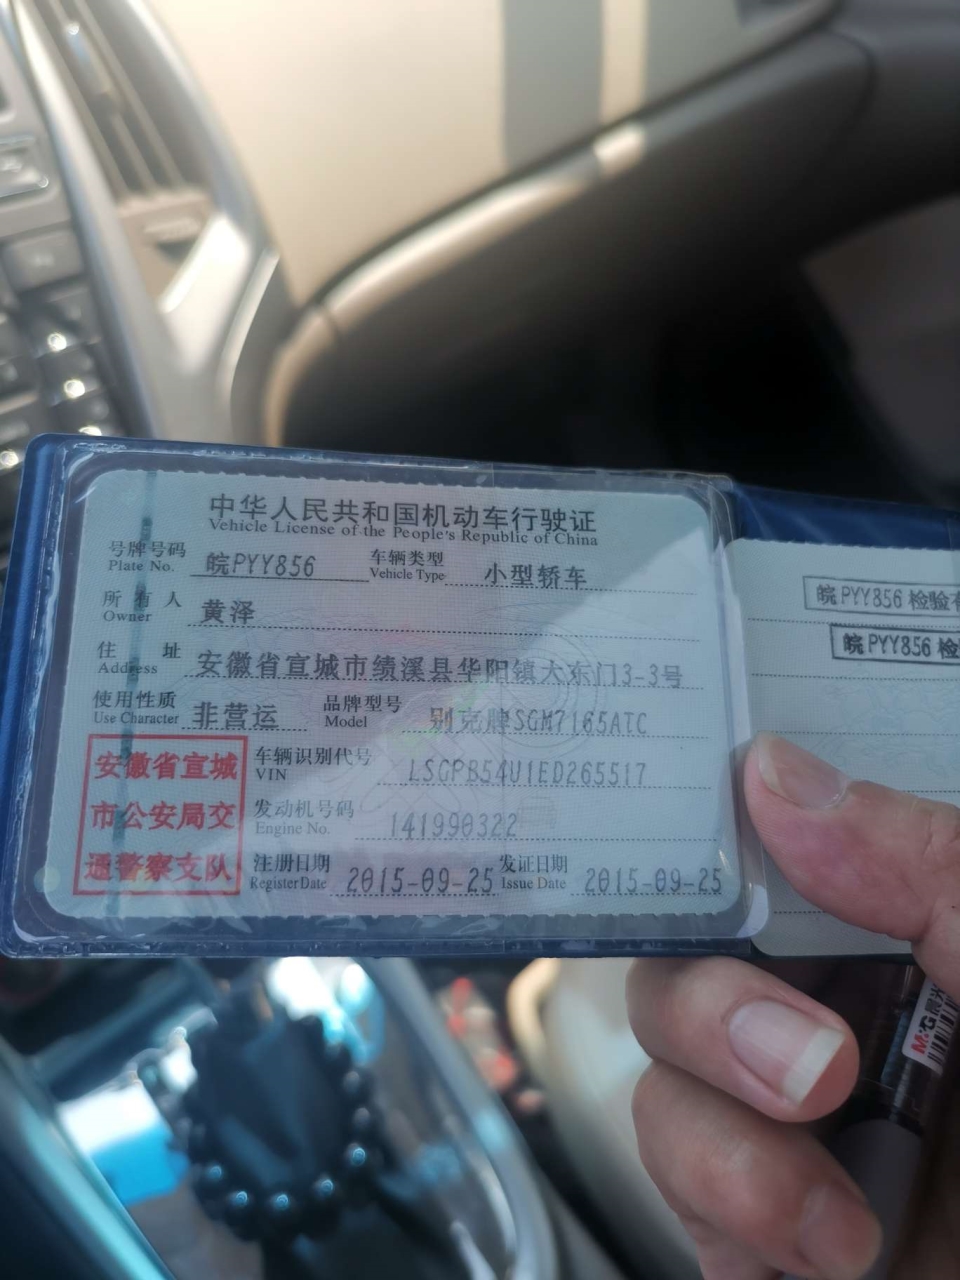 中华人民共和国机动车行驶证
Vehicle License of the People's Republic of China
号牌号码 皖PYY856 车辆类型 小型轿车
Plate No. Vehicle Type
所有人 黄泽
Owner
住址 安徽省宣城市绩溪县华阳镇大东门3-3号
Address
使用性质 非营运 品牌型号 别克牌SGM7165ATC
Use Character Model
安徽省宣城
市公安局交
通警察支队
车辆识别代号 LSGPB54U1ED265517
VIN
发动机号码 141990322
Engine No.
注册日期 2015-09-25 发证日期 2015-09-25
Register Date Issue Date
皖PYY856 检验有
皖PYY856 检验
M&G 晨光